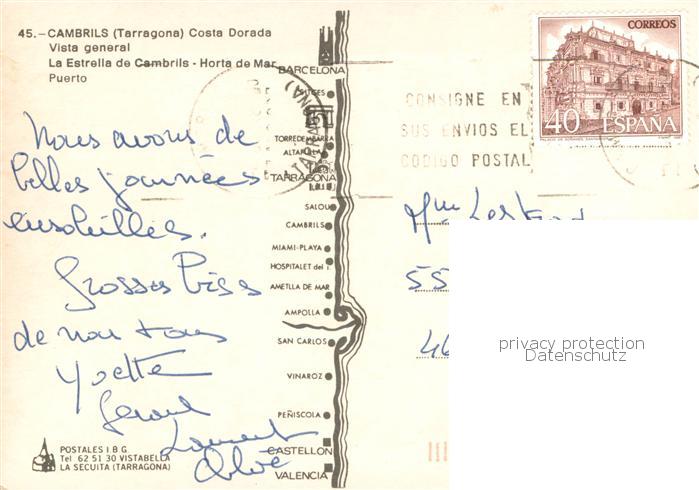 45.—CAMBRILS (Tarragona) Costa Dorada
Vista general
La Estrella de Cambrils - Horta de Mar
Puerto
Nous avons de
belles journées
ensoleillées.
Grosses Bises
de nous tous
Yvette
Gérard
Laurent
Chloé
POSTALES I.B.G.
Tel 62 51 30 VISTABELLA
LA SECUITA (TARRAGONA)
BARCELONA
SITGES
TORREDEMBARRA
ALTAFULLA
TARRAGONA
SALOU
CAMBRILS
MIAMI-PLAYA
HOSPITALET del I.
AMETLLA DE MAR
AMPOLLA
SAN CARLOS
VINAROZ
PEÑISCOLA
CASTELLON
VALENCIA
(TARRAGONA)
CONSIGNE EN
SUS ENVIOS EL
CODIGO POSTAL
CORREOS
40 ESPAÑA
Mme
55
46
privacy protection
Datenschutz